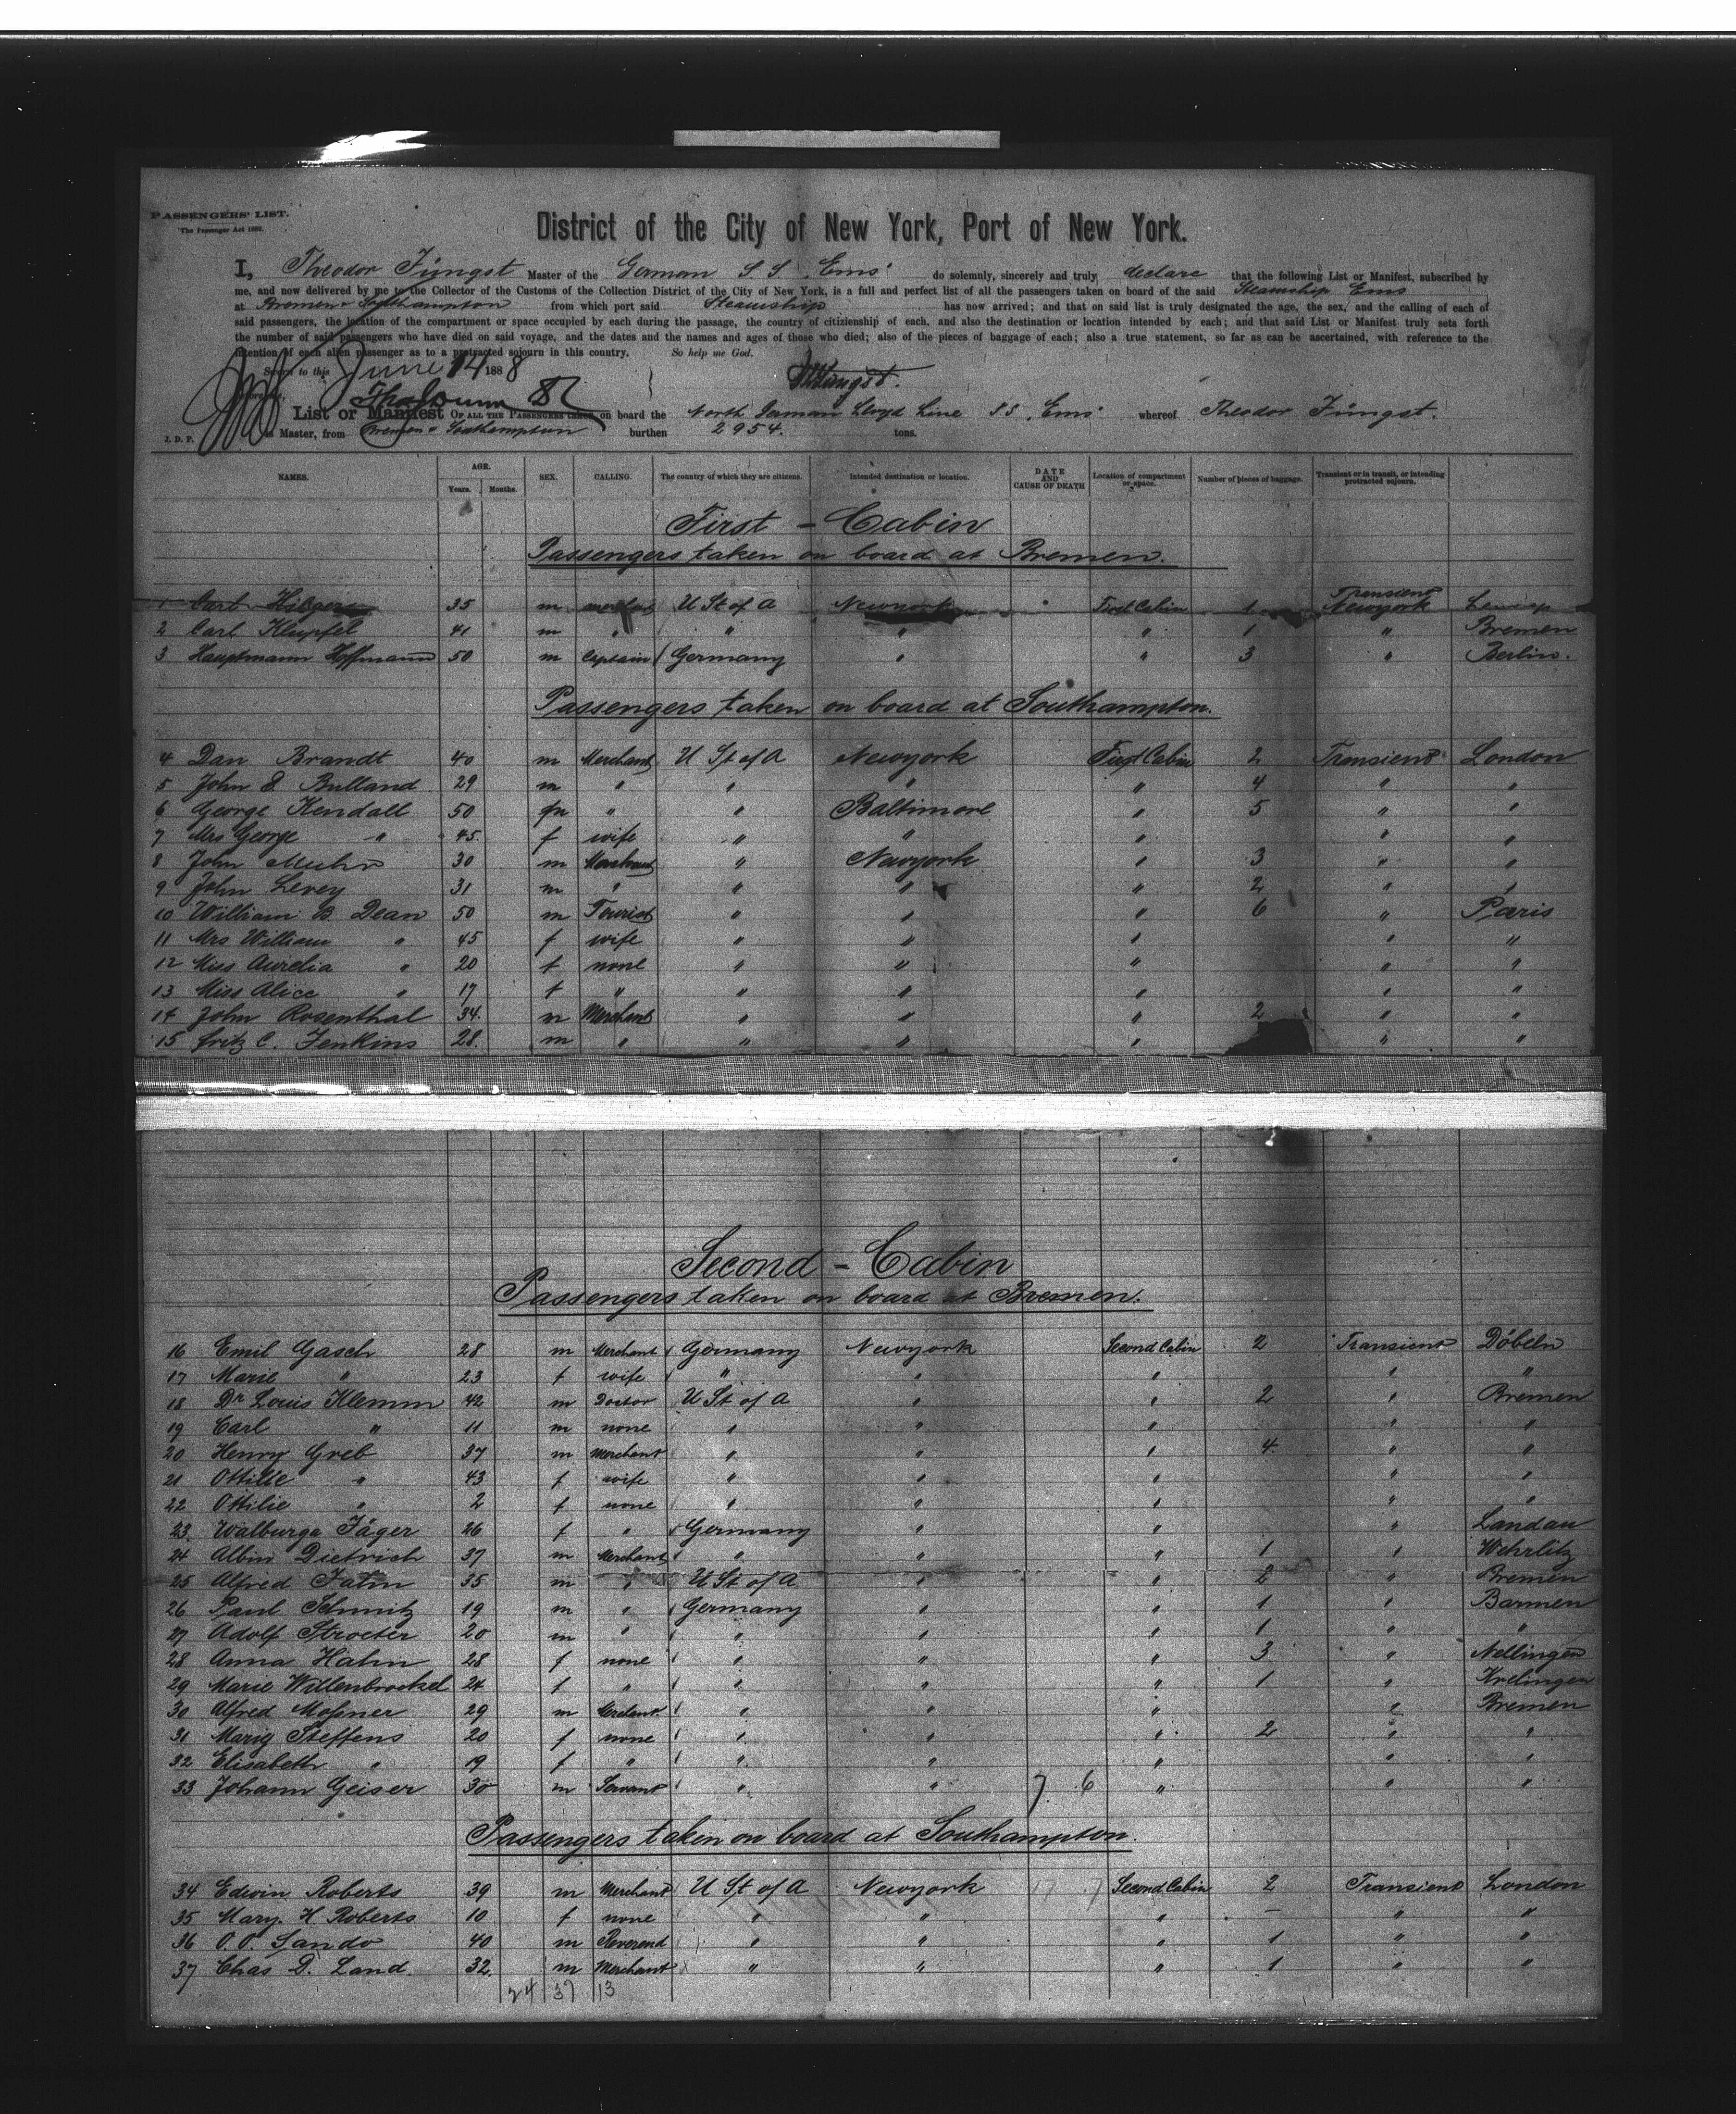 PASSENGERS' LIST.
The Passenger Act 1882.
District of the City of New York, Port of New York.
I, Theodor Jüngst Master of the German S. S. "Ems" do solemnly, sincerely and truly declare that the following List or Manifest, subscribed by
me, and now delivered by me to the Collector of the Customs of the Collection District of the City of New York, is a full and perfect list of all the passengers taken on board of the said Steamship Ems
at Bremen & Southampton from which port said Steamship has now arrived; and that on said list is truly designated the age, the sex, and the calling of each of
said passengers, the location of the compartment or space occupied by each during the passage, the country of citizienship of each, and also the destination or location intended by each; and that said List or Manifest truly sets forth
the number of said passengers who have died on said voyage, and the dates and the names and ages of those who died; also of the pieces of baggage of each; also a true statement, so far as can be ascertained, with reference to the
intention of each alien passenger as to a protracted sojourn in this country. So help me God.
Sworn to this June 14 1888
List or Manifest OF ALL THE PASSENGERS taken on board the North German Lloyd Line SS. "Ems" whereof Theodor Jüngst.
J. D. P. is Master, from Bremen & Southampton burthen 2954. tons.
NAMES. AGE. Years. Months. SEX. CALLING. The country of which they are citizens. Intended destination or location. DATE AND CAUSE OF DEATH Location of compartment or space. Number of pieces of baggage. Transient or in transit, or intending protracted sojourn.
First - Cabin
Passengers taken on board at Bremen.
Transient
1 Carl Hilgers 35 m U St of A Newyork First Cabin 1 Newyork
2 Carl Klupfel 41 m " " " " 1 " Bremen
3 Hauptmann Hoffmann 50 m Captain Germany " " 3 " Berlin.
Passengers taken on board at Southampton.
4 Dan Brandt 40 m Merchant U St of A Newyork First Cabin 2 Transient London
5 John E Bulland 29 m " " " " 4 " "
6 George Kendall 50 m " " Baltimore " 5 " "
7 Mrs George " 45. f wife " " " " "
8 John Muhr 30 m Merchant " Newyork " 3 " "
9 John Levey 31 m " " " " 2 " "
10 William B. Dean 50 m Tourist " " " 6 " Paris
11 Mrs William " 45 f wife " " " " "
12 Miss Aurelia " 20 f none " " " " "
13 Miss Alice " 17 f " " " " " "
14 John Rosenthal 34. m Merchant " " " 2 " "
15 Fritz C. Jenkins 28. m " " " " " "
Second - Cabin
Passengers taken on board at Bremen.
16 Emil Gasch 28 m Merchant Germany Newyork Second Cabin 2 Transient Döbeln
17 Marie " 23 f wife " " " " "
18 Dr Louis Klemm 42 m Doctor U St of A " " 2 " Bremen
19 Carl " 11 m none " " " " "
20 Henry Greb 37 m Merchant " " " 4 " "
21 Ottilie " 43 f wife " " " " "
22 Ottilie " 2 f none " " " " "
23. Walburga Jäger 26 f " Germany " " " Landau
24 Albin Dietrich 37 m Merchant " " " 1 " Wehrlitz
25 Alfred Jahn 35 m " U St of A " " 2 " Bremen
26 Paul Schmitz 19 m " Germany " " 1 " Barmen
27 Adolf Stroeter 20 m " " " " 1 " "
28 Anna Hahn 28 f none " " " 3 " Nellingen
29 Marie Willenbrockel 24 f " " " " 1 " Krelingen
30 Alfred Moßner 29 m Merchant " " " " Bremen
31 Marig Steffens 20 f none " " " 2 " "
32 Elisabeth " 19 f " " " " " "
33 Johann Geiser 30 m Servant " " 7. 6 " " "
Passengers taken on board at Southampton.
34 Edwin Roberts 39 m Merchant U St of A Newyork 17 7 Second Cabin 2 Transient London
35 Mary. H Roberts 10 f none " " " - " "
36 O. P. Sando 40 m Reverend " " " 1 " "
37 Chas D. Land. 32. m Merchant " " " 1 " "
24 37 13